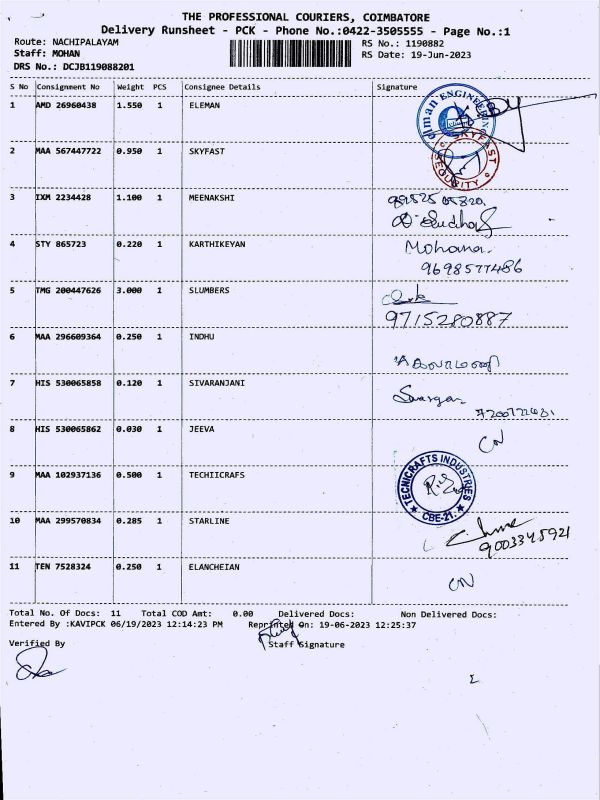 THE PROFESSIONAL COURIERS, COIMBATORE
Delivery Runsheet - PCK - Phone No.:0422-3505555 - Page No.:1
Route: NACHIPALAYAM RS No.: 1190882
Staff: MOHAN RS Date: 19-Jun-2023
DRS No.: DCJB119088201
S No Consignment No Weight PCS Consignee Details Signature
1 AMD 26960438 1.550 1 ELEMAN
2 MAA 567447722 0.950 1 SKYFAST
SKYFAST SECURITY
3 IXM 2234428 1.100 1 MEENAKSHI
4 STY 865723 0.220 1 KARTHIKEYAN Mohana.
9698577486
5 TMG 200447626 3.000 1 SLUMBERS
9715280887
6 MAA 296609364 0.250 1 INDHU
7 HIS 530065858 0.120 1 SIVARANJANI
8 HIS 530065862 0.030 1 JEEVA CN
9 MAA 102937136 0.500 1 TECHIICRAFS
TECHNICRAFTS INDUSTRIES
CBE-21.
10 MAA 299570834 0.285 1 STARLINE
9003345921
11 TEN 7528324 0.250 1 ELANCHEIAN CN
Total No. Of Docs: 11 Total COD Amt: 0.00 Delivered Docs: Non Delivered Docs:
Entered By :KAVIPCK 06/19/2023 12:14:23 PM Reprinted On: 19-06-2023 12:25:37
Verified By Staff Signature